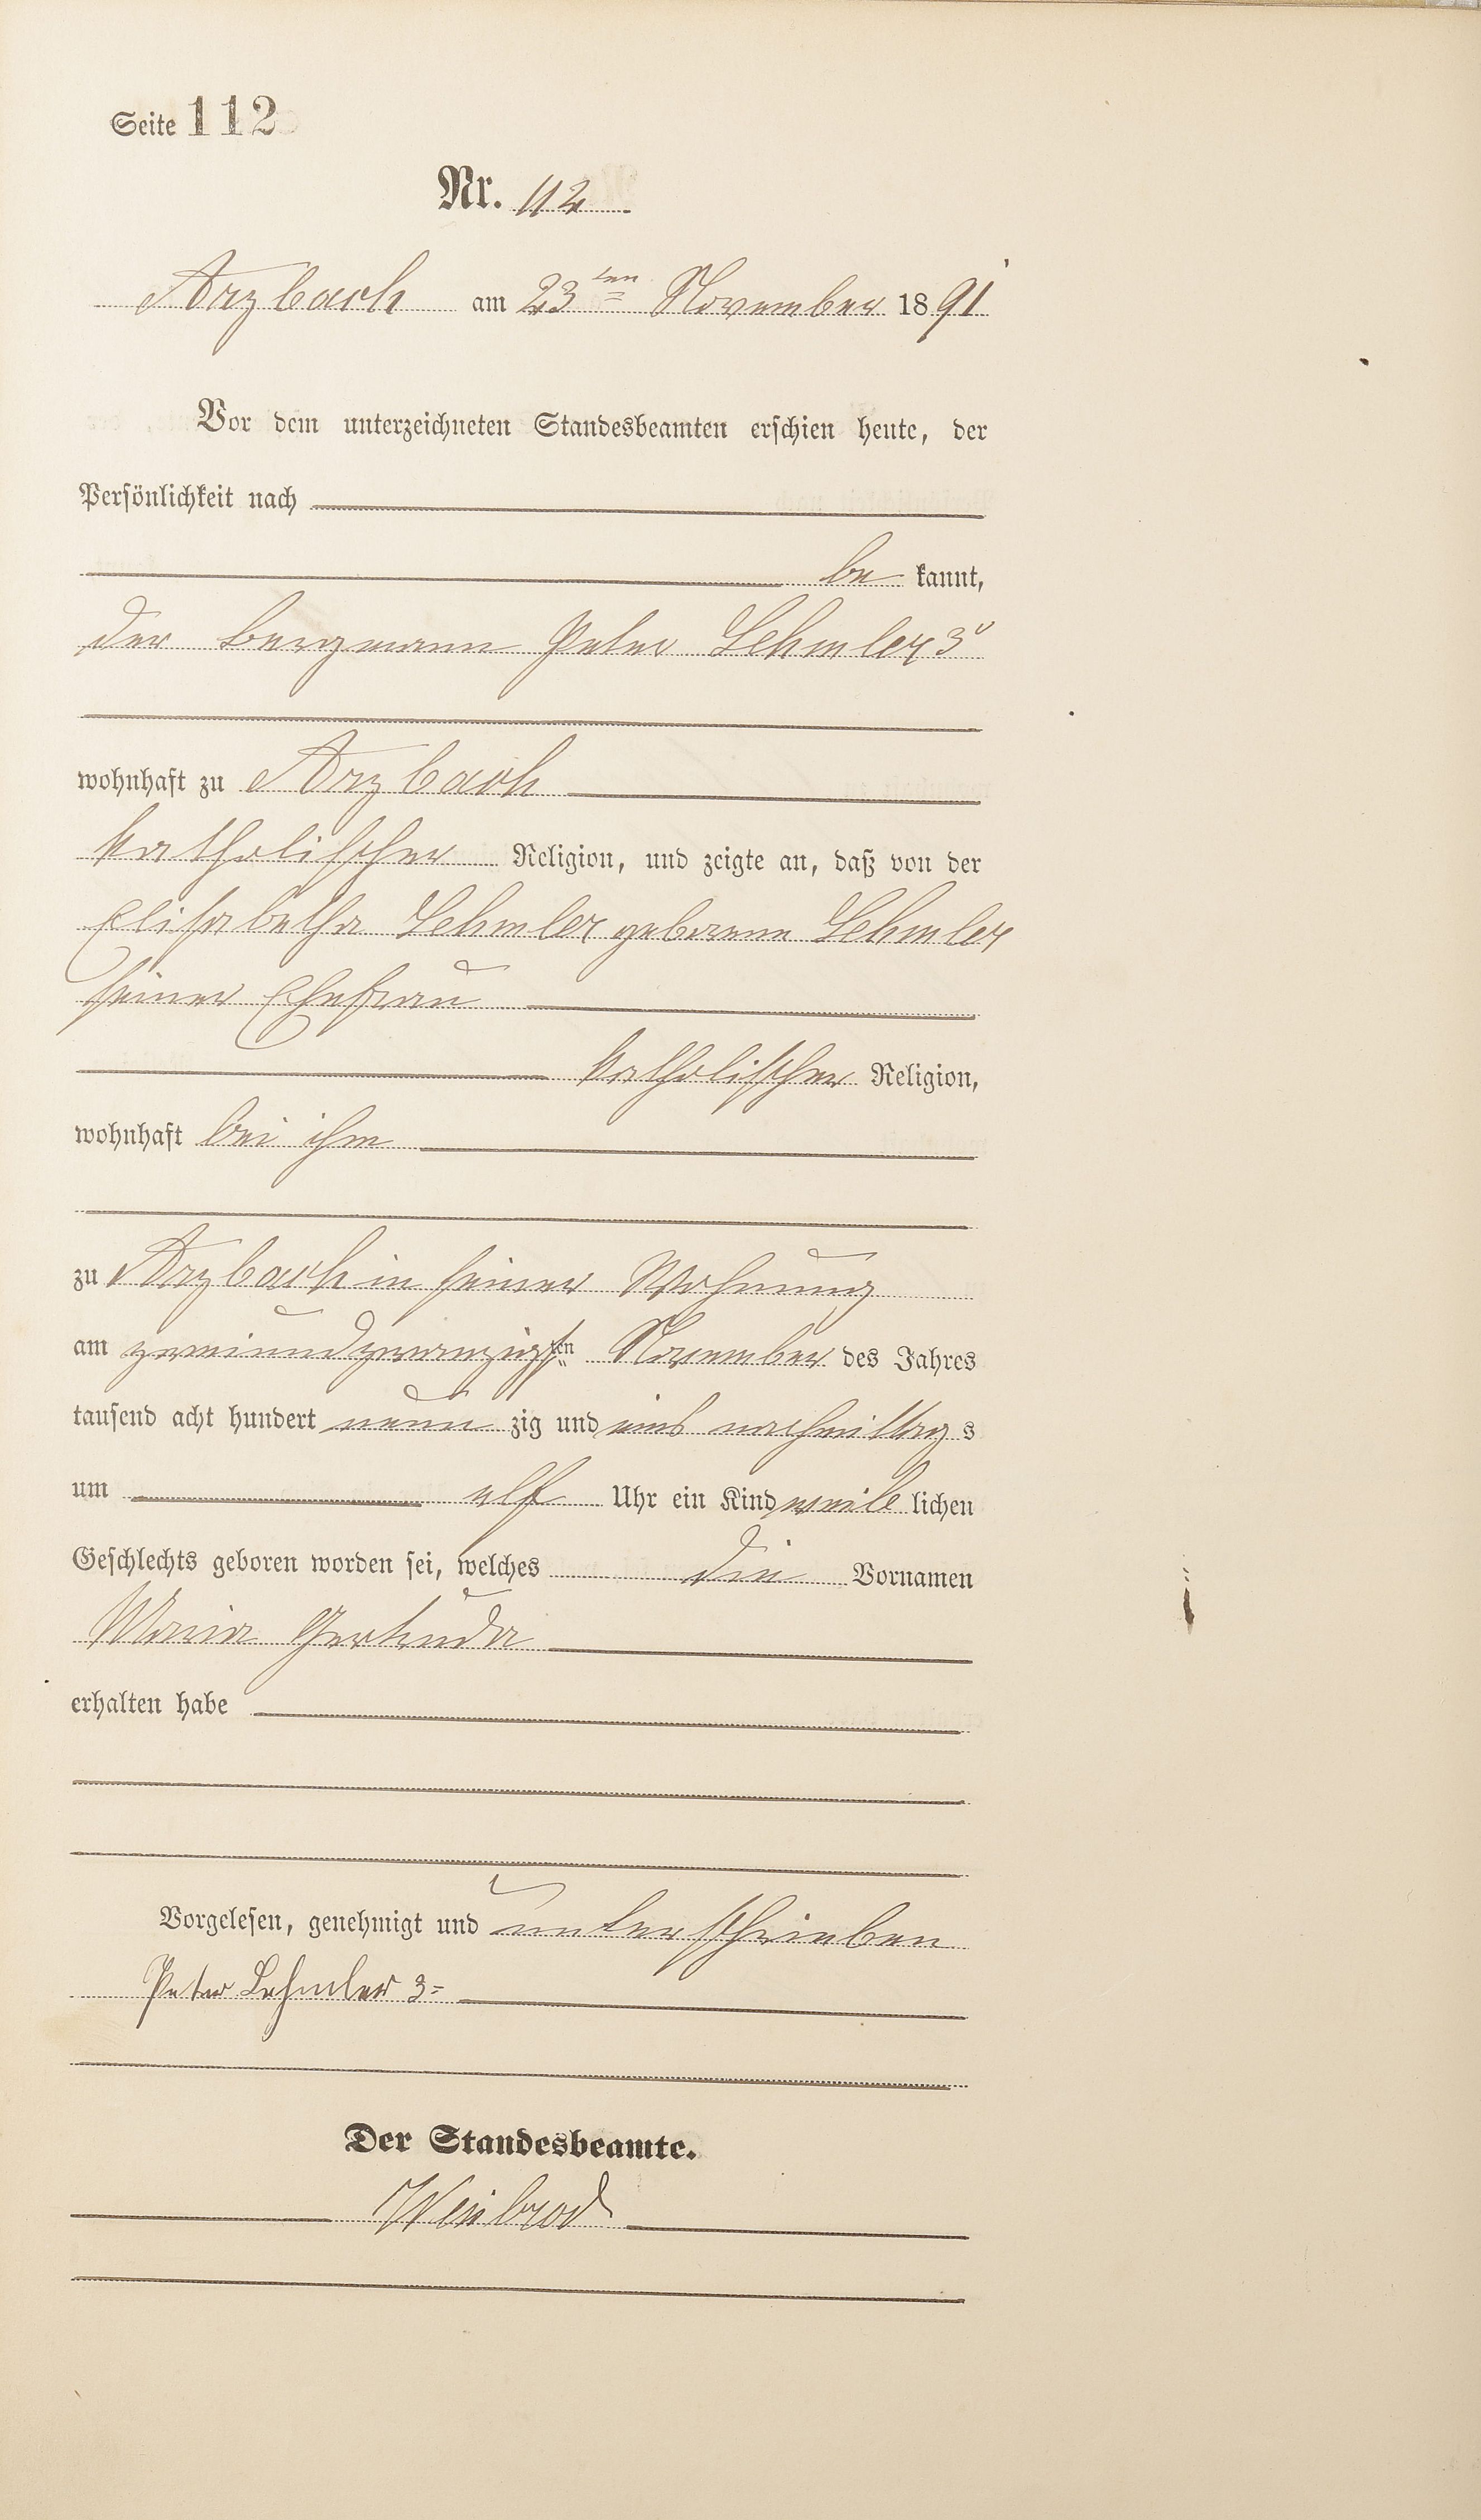 Seite 112
Nr. 112
Arzbach am 23ten November 1891
Vor dem unterzeichneten Standesbeamten erschien heute, der
Persönlichkeit nach
be kannt,
der Bergmann Peter Lehmler 3r
wohnhaft zu Arzbach
katholischer Religion, und zeigte an, daß von der
Elisabetha Lehmler geborene Lehmler
seiner Ehefrau
katholischer Religion,
wohnhaft bei ihm
zu Arzbach in seiner Wohnung
am zweiundzwanzigsten November des Jahres
tausend acht hundert neun zig und eins nachmittag s
um elf Uhr ein Kind weib lichen
Geschlechts geboren worden sei, welches die Vornamen
Maria Gertruda
erhalten habe
Vorgelesen, genehmigt und unterschrieben
Peter Lehmler 3=
Der Standesbeamte.
Weinbrod